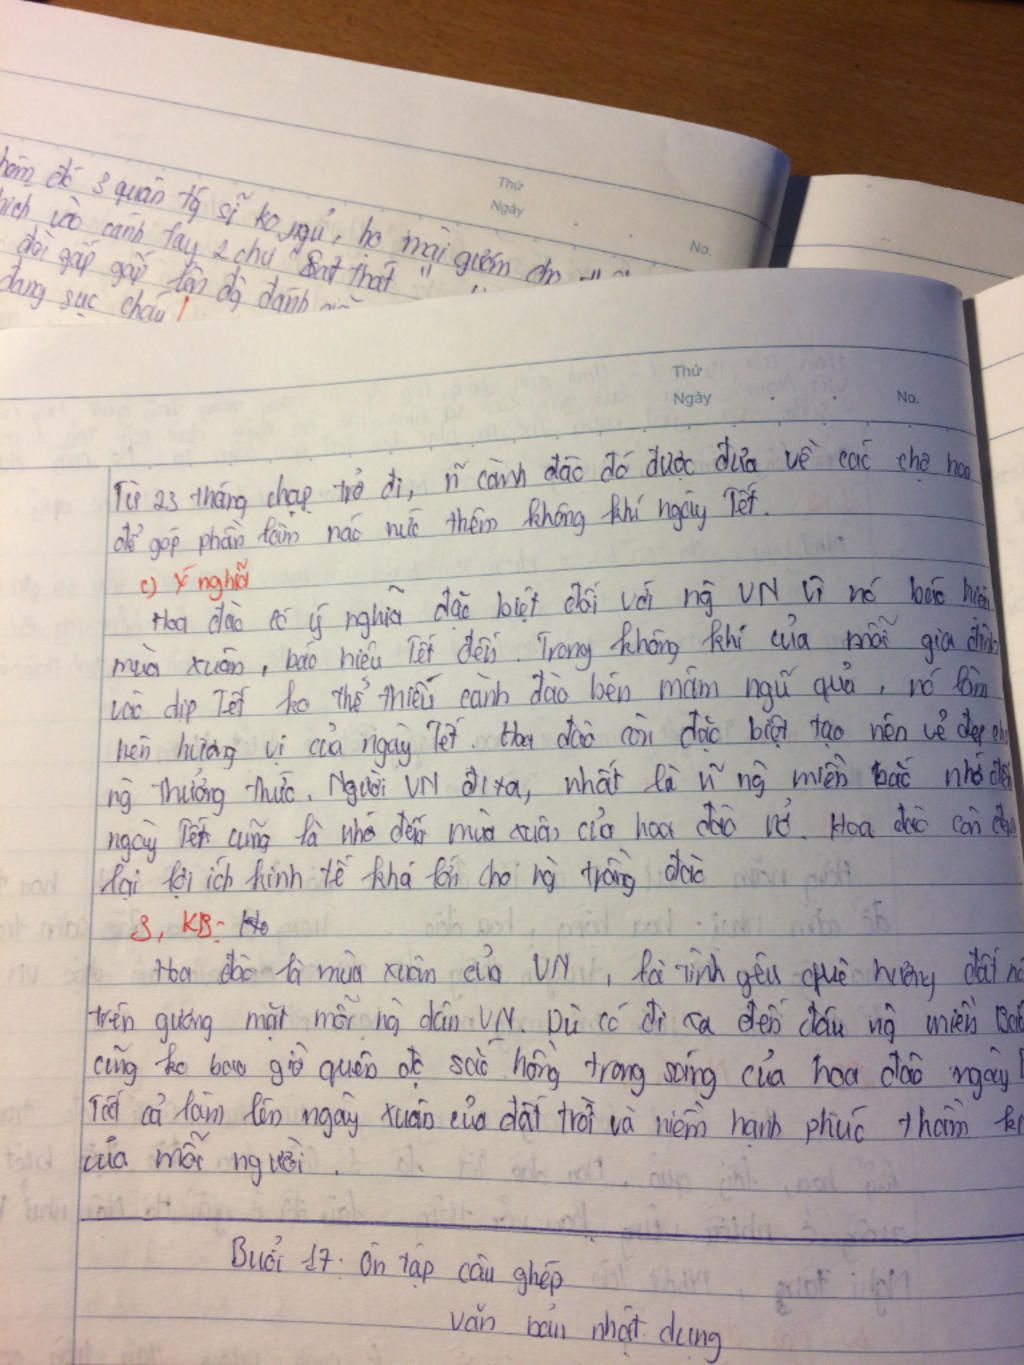 đó 3 quân tg sĩ ko ngủ, họ mài gươm
vào cánh tay 2 chữ "Sát thát"
đòi gấp gấp lên đg đánh
đang sục cháu!
Thứ
Ngày
No.
Thứ
Ngày
No.
Từ 23 tháng chạp trở đi, ~ñ cành đào đó được đưa về các chợ hoa
để góp phần làm náo nức thêm không khí ngày Tết.
c) Ý nghĩa
Hoa đào có ý nghĩa đặc biệt đối với ng VN vì nó báo hiệu
mùa xuân, báo hiệu Tết đến. Trong không khí của mỗi gia đình
vào dịp Tết ko thể thiếu cành đào bên mâm ngũ quả, nó làm
nên hương vị của ngày Tết. Hoa đào còn đặc biệt tạo nên vẻ đẹp cho
ng thưởng thức. Người VN đi xa, nhất là ~ñ ng miền bắc nhớ đến
ngày Tết cũng là nhớ đến mùa xuân của hoa đào nở. Hoa đào còn đem
lại lợi ích kinh tế khá lớn cho ng trồng đào
3, KB:
Hoa đào là mùa xuân của VN, là tình yêu quê hương đất
trên gương mặt mỗi ng dân VN. Dù có đi xa đến đâu ng miền Bắc
cũng ko bao giờ quên đc sắc hồng trong sáng của hoa đào ngày
Tất cả làm lên ngày xuân của đất trời và niềm hạnh phúc thầm
của mỗi người.
Buổi 17: Ôn tập câu ghép
Văn bản nhật dụng